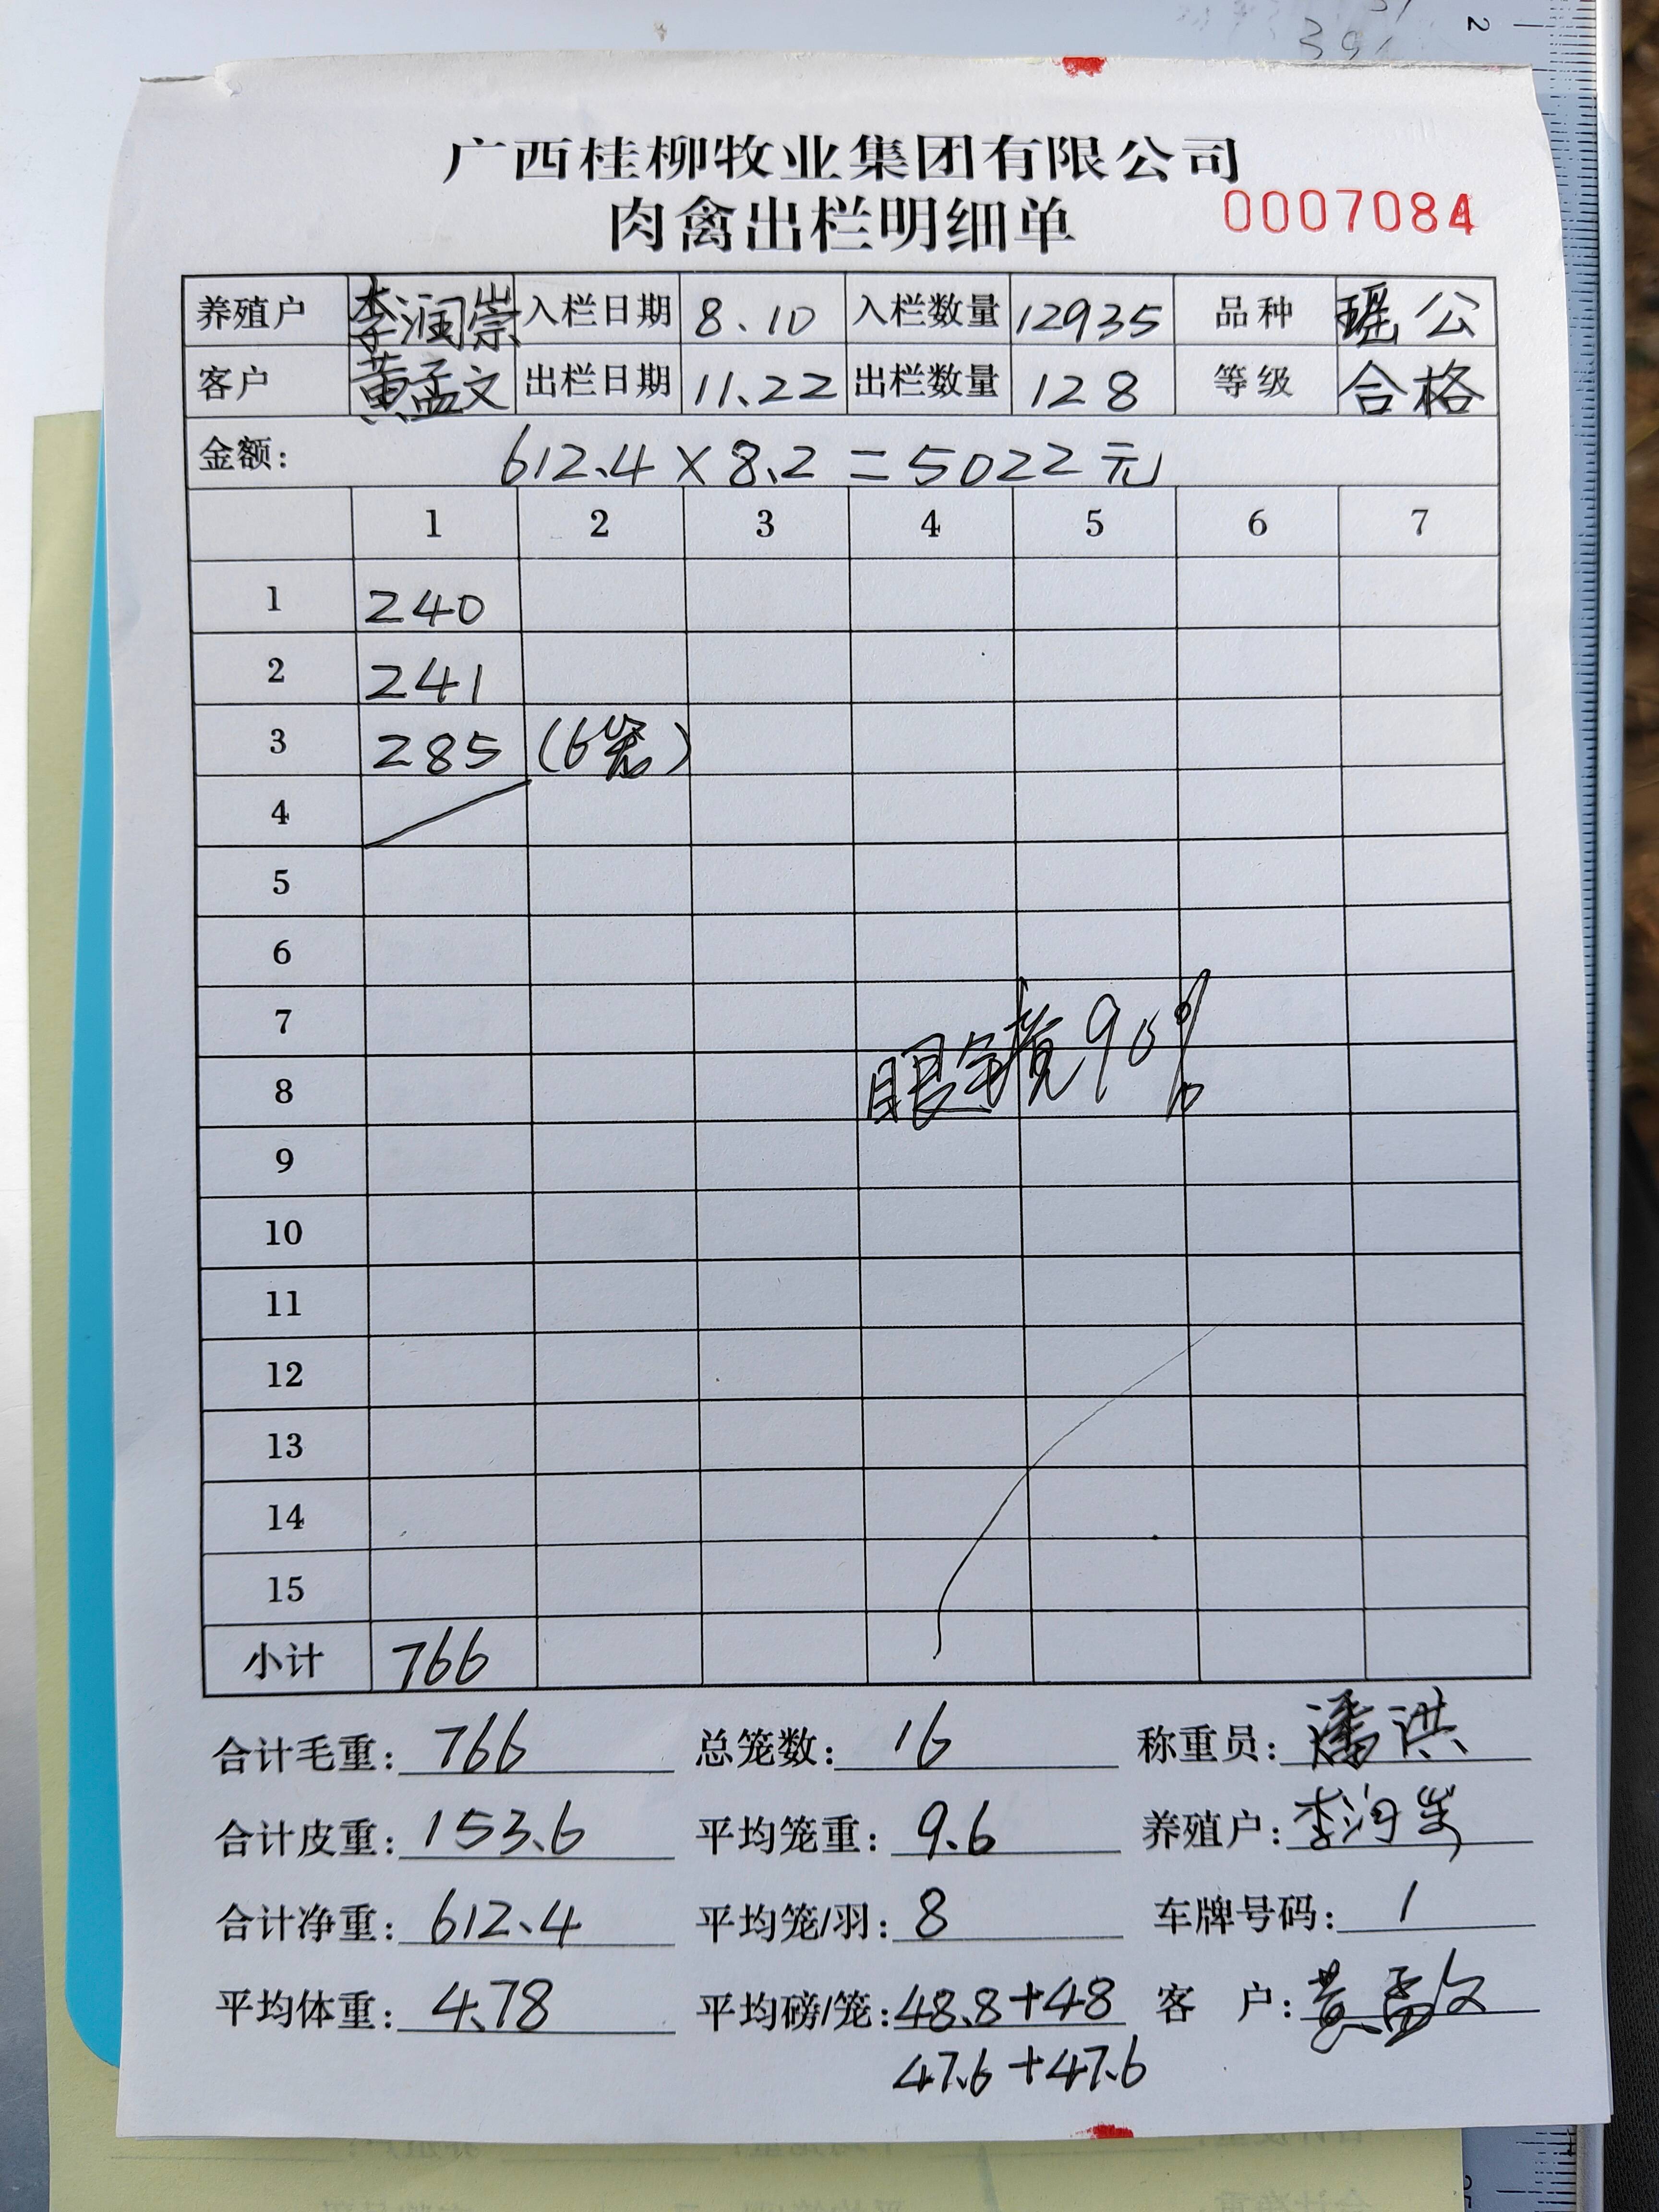 广西桂柳牧业集团有限公司
肉禽出栏明细单 0007084
养殖户 李润崇 入栏日期 8.10 入栏数量 12935 品种 瑶公
客户 黄孟文 出栏日期 11.22 出栏数量 128 等级 合格
金额: 612.4×8.2=5022元
1 2 3 4 5 6 7
1 240
2 241
3 285 (6笼)
4
5
6
7
8 眼镜90%
9
10
11
12
13
14
15
小计 766
合计毛重: 766 总笼数: 16 称重员: 潘洪
合计皮重: 153.6 平均笼重: 9.6 养殖户: 李润崇
合计净重: 612.4 平均笼/羽: 8 车牌号码: 1
平均体重: 4.78 平均磅/笼: 48.8+48 客 户: 黄孟文
47.6+47.6